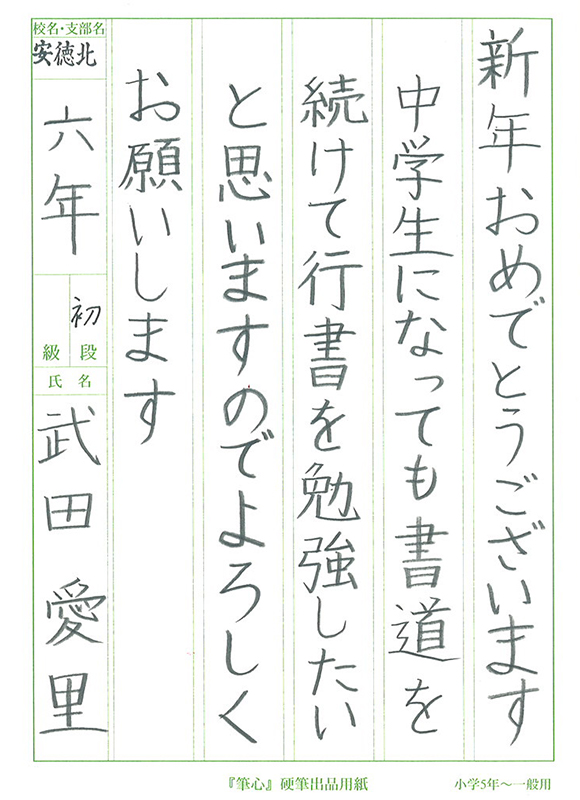 新年おめでとうございます
中学生になっても書道を
続けて行書を勉強したい
と思いますのでよろしく
お願いします
校名・支部名
安徳北
六年
初
級 段
氏 名
武田 愛里
『筆心』硬筆出品用紙
小学5年～一般用